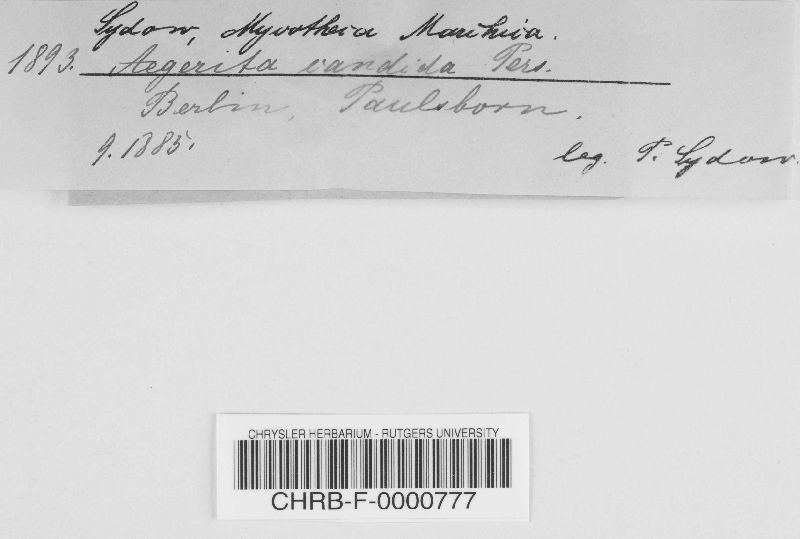 Sydow, Mycotheca Marchica.
1893. Aegerita candida Pers.
Berlin, Paulsborn.
9.1885.
leg. P. Sydow.
CHRYSLER HERBARIUM - RUTGERS UNIVERSITY
CHRB-F-0000777